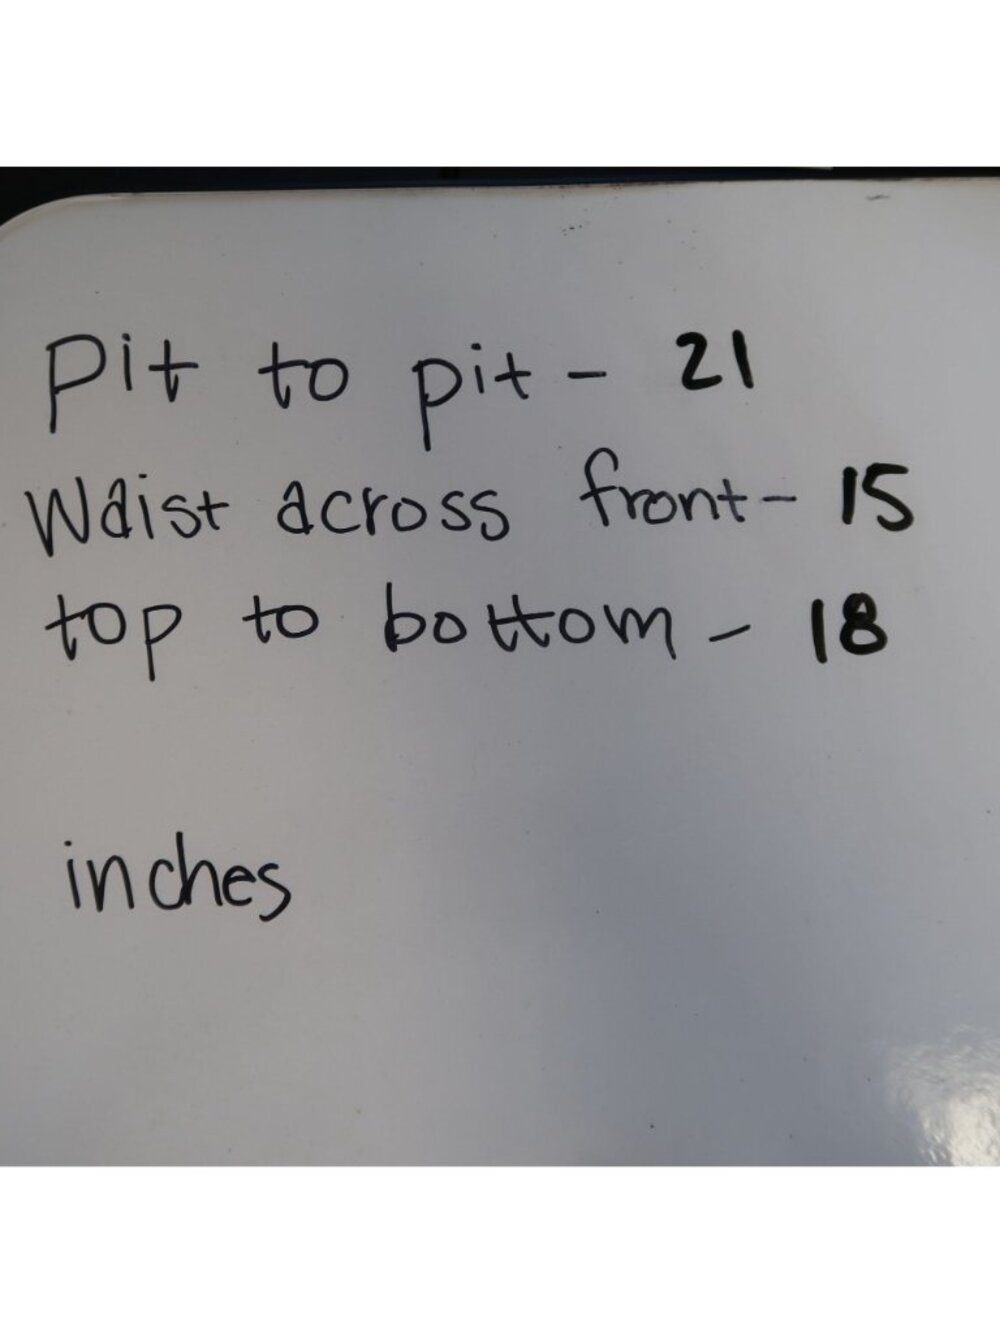 Pit to pit - 21
Waist across front - 15
top to bottom - 18
inches